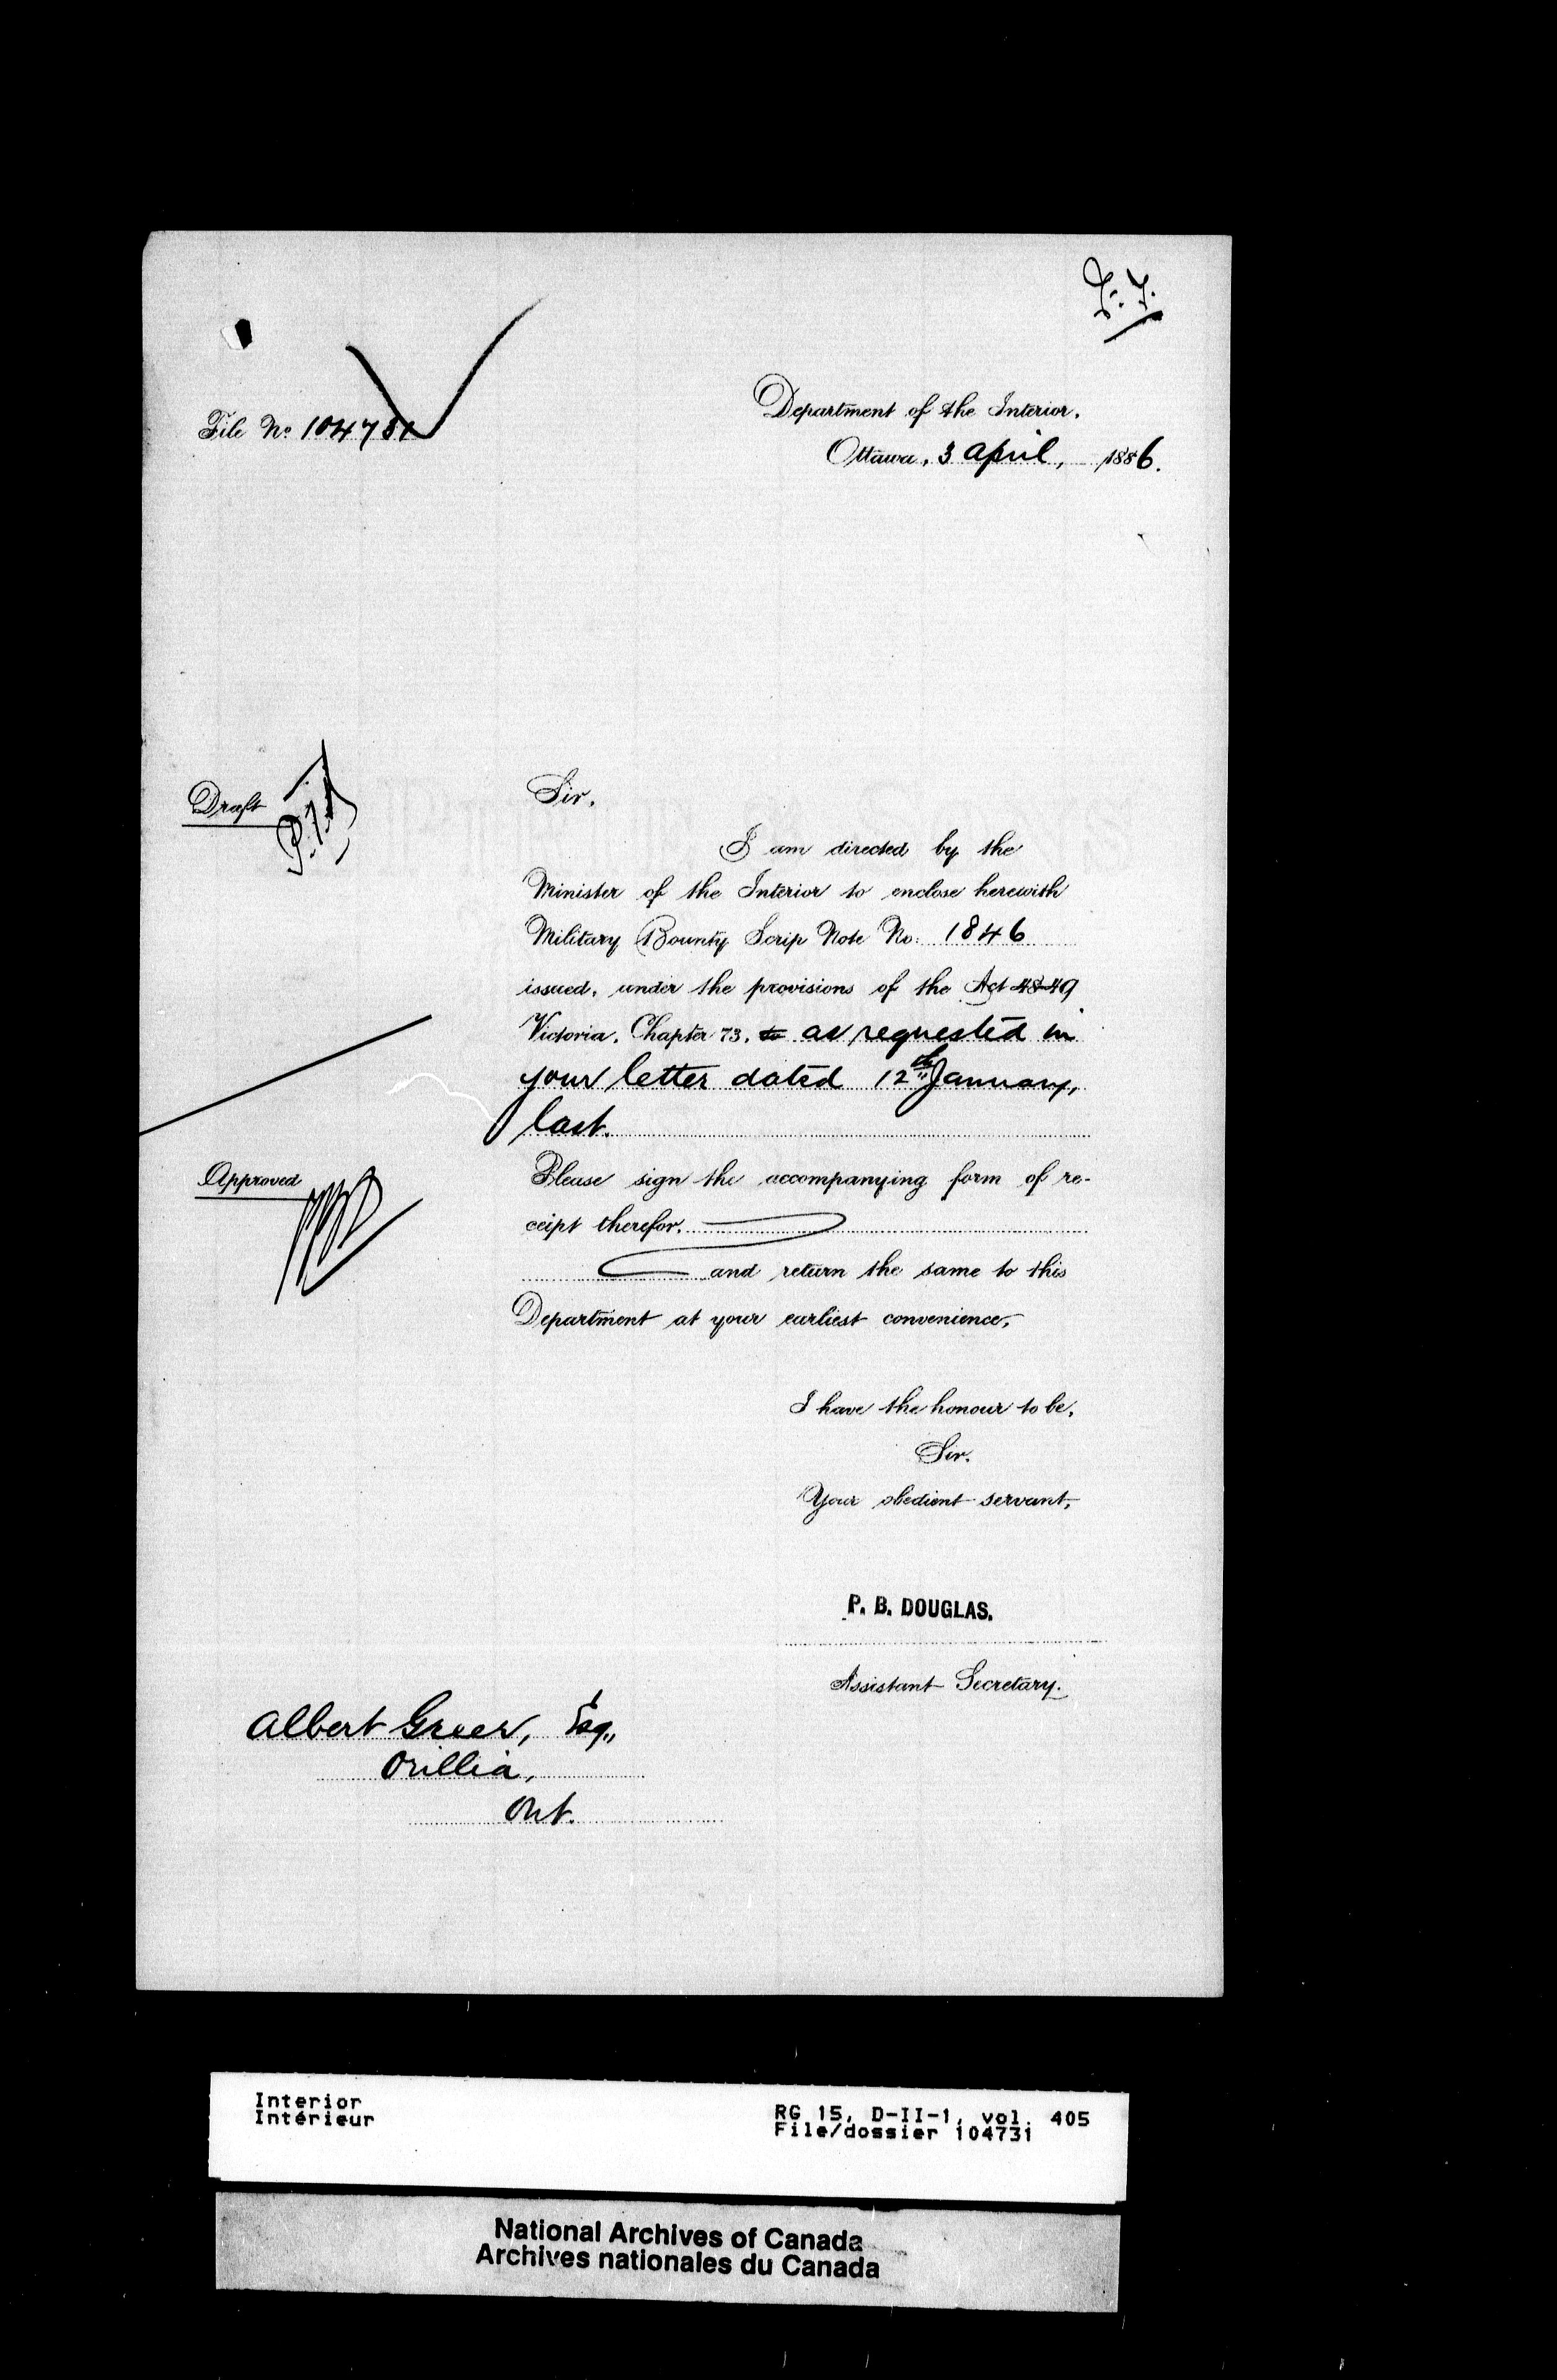 File No 104731
Department of the Interior.
Ottawa, 3 April, 1886.
Draft
Sir,
I am directed by the
Minister of the Interior to enclose herewith
Military Bounty Scrip Note No. 1846
issued, under the provisions of the Act 48-49
Victoria, Chapter 73, to as requested in
your letter dated 12th January,
last.
Approved
Please sign the accompanying form of re-
ceipt therefor,
and return the same to this
Department at your earliest convenience,
I have the honour to be,
Sir,
Your obedient servant,
P. B. DOUGLAS.
Assistant Secretary.
Albert Greer, Esq,,
Orillia,
Ont.
Interior
Intérieur
RG 15, D-II-1, vol. 405
File/dossier 104731
National Archives of Canada
Archives nationales du Canada